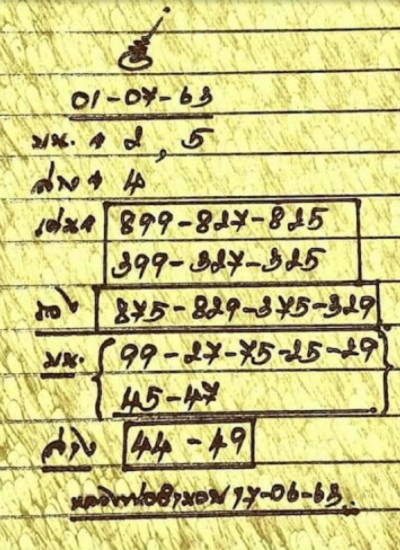 01-07-63
บน. จ 2, 5
ล่าง จ 4
เด่นจ 899-827-825
399-327-325
รอง 875-829-375-329
บน. 99-27-75-25-29
45-47
ล่าง 44-49
17-06-63.